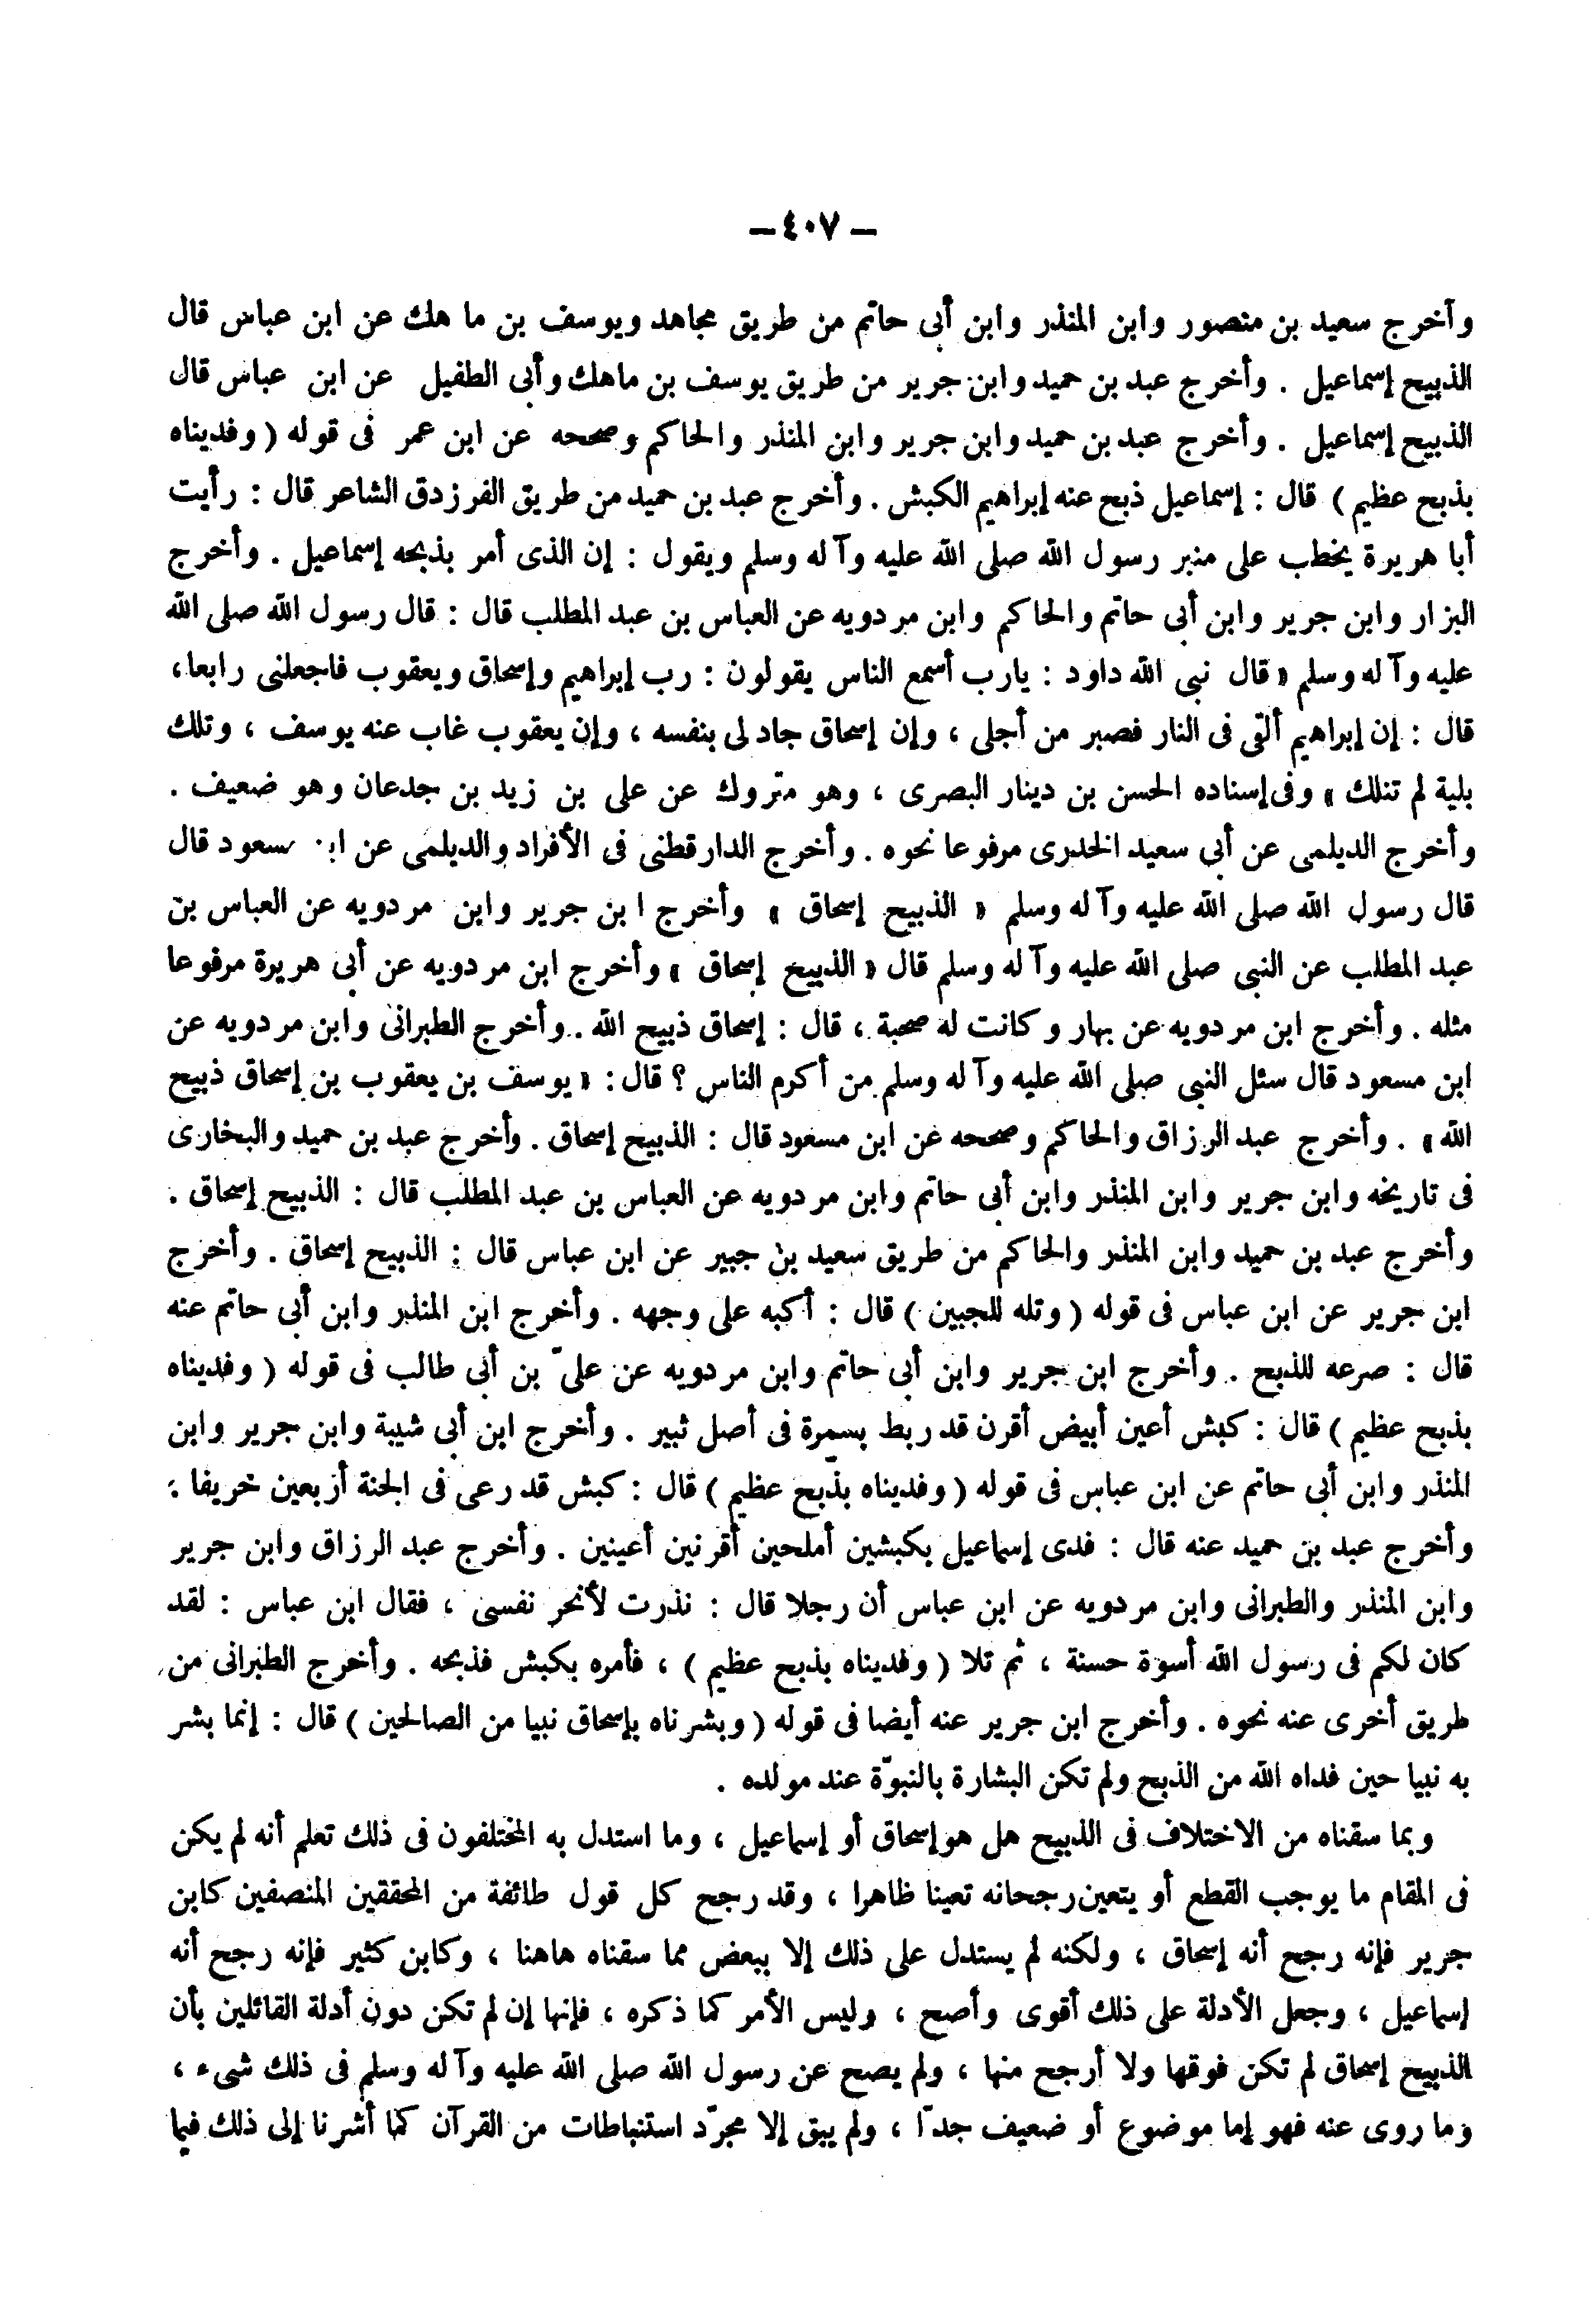 — ٤٠٧ —
وأخرج سعيد بن منصور وابن المنذر وابن أبى حاتم من طريق مجاهد ويوسف بن ما هك عن ابن عباس قال
الذبيح إسماعيل . وأخرج عبد بن حميد وابن جرير من طريق يوسف بن ماهك وأبى الطفيل عن ابن عباس قال
الذبيح إسماعيل . وأخرج عبد بن حميد وابن جرير وابن المنذر والحاكم وصححه عن ابن عمر فى قوله ( وفديناه
بذبح عظيم ) قال : إسماعيل ذبح عنه إبراهيم الكبش . وأخرج عبد بن حميد من طريق الفرزدق الشاعر قال : رأيت
أبا هريرة يخطب على منبر رسول الله صلى الله عليه وآله وسلم ويقول : إن الذى أمر بذبحه إسماعيل . وأخرج
البزار وابن جرير وابن أبى حاتم والحاكم وابن مردويه عن العباس بن عبد المطلب قال : قال رسول الله صلى الله
عليه وآله وسلم « قال نبى الله داود : يارب أسمع الناس يقولون : رب إبراهيم وإسحاق ويعقوب فاجعلنى رابعا ،
قال : إن إبراهيم ألقى فى النار فصبر من أجلى ، وإن إسحاق جاد لى بنفسه ، وإن يعقوب غاب عنه يوسف ، وتلك
بلية لم تنلك » وفى إسناده الحسن بن دينار البصرى ، وهو متروك عن على بن زيد بن جدعان وهو ضعيف .
وأخرج الديلمى عن أبى سعيد الخدرى مرفوعا نحوه . وأخرج الدارقطنى فى الأفراد والديلمى عن ابن مسعود قال
قال رسول الله صلى الله عليه وآله وسلم « الذبيح إسحاق » وأخرج ابن جرير وابن مردويه عن العباس بن
عبد المطلب عن النبى صلى الله عليه وآله وسلم قال « الذبيح إسحاق » وأخرج ابن مردويه عن أبى هريرة مرفوعا
مثله . وأخرج ابن مردويه عن بهار وكانت له صحبة ، قال : إسحاق ذبيح الله . وأخرج الطبرانى وابن مردويه عن
ابن مسعود قال سئل النبى صلى الله عليه وآله وسلم من أكرم الناس ؟ قال : « يوسف بن يعقوب بن إسحاق ذبيح
الله » . وأخرج عبد الرزاق والحاكم وصححه عن ابن مسعود قال : الذبيح إسحاق . وأخرج عبد بن حميد والبخارى
فى تاريخه وابن جرير وابن المنذر وابن أبى حاتم وابن مردويه عن العباس بن عبد المطلب قال : الذبيح إسحاق .
وأخرج عبد بن حميد وابن المنذر والحاكم من طريق سعيد بن جبير عن ابن عباس قال : الذبيح إسحاق . وأخرج
ابن جرير عن ابن عباس فى قوله ( وتله للجبين ) قال : أكبه على وجهه . وأخرج ابن المنذر وابن أبى حاتم عنه
قال : صرعه للذبح . وأخرج ابن جرير وابن أبى حاتم وابن مردويه عن علىّ بن أبى طالب فى قوله ( وفديناه
بذبح عظيم ) قال : كبش أعين أبيض أقرن قد ربط بسمرة فى أصل ثبير . وأخرج ابن أبى شيبة وابن جرير وابن
المنذر وابن أبى حاتم عن ابن عباس فى قوله ( وفديناه بذبح عظيم ) قال : كبش قد رعى فى الجنة أربعين خريفا ؛
وأخرج عبد بن حميد عنه قال : فدى إسماعيل بكبشين أملحين أقرنين أعينين . وأخرج عبد الرزاق وابن جرير
وابن المنذر والطبرانى وابن مردويه عن ابن عباس أن رجلا قال : نذرت لأنحر نفسى ، فقال ابن عباس : لقد
كان لكم فى رسول الله أسوة حسنة ، ثم تلا ( وفديناه بذبح عظيم ) ، فأمره بكبش فذبحه . وأخرج الطبرانى من
طريق أخرى عنه نحوه . وأخرج ابن جرير عنه أيضا فى قوله ( وبشرناه بإسحاق نبيا من الصالحين ) قال : إنما بشر
به نبيا حين فداه الله من الذبح ولم تكن البشارة بالنبوّة عند مولده .
وبما سقناه من الاختلاف فى الذبيح هل هو إسحاق أو إسماعيل ، وما استدل به المختلفون فى ذلك تعلم أنه لم يكن
فى المقام ما يوجب القطع أو يتعين رجحانه تعينا ظاهرا ، وقد رجح كل قول طائفة من المحققين المنصفين كابن
جرير فإنه رجح أنه إسحاق ، ولكنه لم يستدل على ذلك إلا ببعض مما سقناه هاهنا ، وكابن كثير فإنه رجح أنه
إسماعيل ، وجعل الأدلة على ذلك أقوى وأصح ، وليس الأمر كما ذكره ، فإنها إن لم تكن دون أدلة القائلين بأن
الذبيح إسحاق لم تكن فوقها ولا أرجح منها ، ولم يصح عن رسول الله صلى الله عليه وآله وسلم فى ذلك شىء ،
وما روى عنه فهو إما موضوع أو ضعيف جدّا ، ولم يبق إلا مجرّد استنباطات من القرآن كما أشرنا إلى ذلك فيما